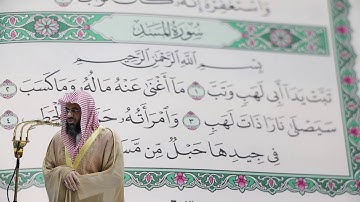 وَٱسْتَغْفِرْهُ إِنَّهُ كَانَ تَوَّابًا
سُورَةُ المَسَدِ
بِسْمِ اللَّهِ الرَّحْمَٰنِ الرَّحِيمِ
تَبَّتْ يَدَآ أَبِي لَهَبٍ وَتَبَّ ١ مَآ أَغْنَىٰ عَنْهُ مَالُهُ وَمَا كَسَبَ ٢
سَيَصْلَىٰ نَارًا ذَاتَ لَهَبٍ ٣ وَٱمْرَأَتُهُ ٤
فِي جِيدِهَا حَبْلٌ مِّن